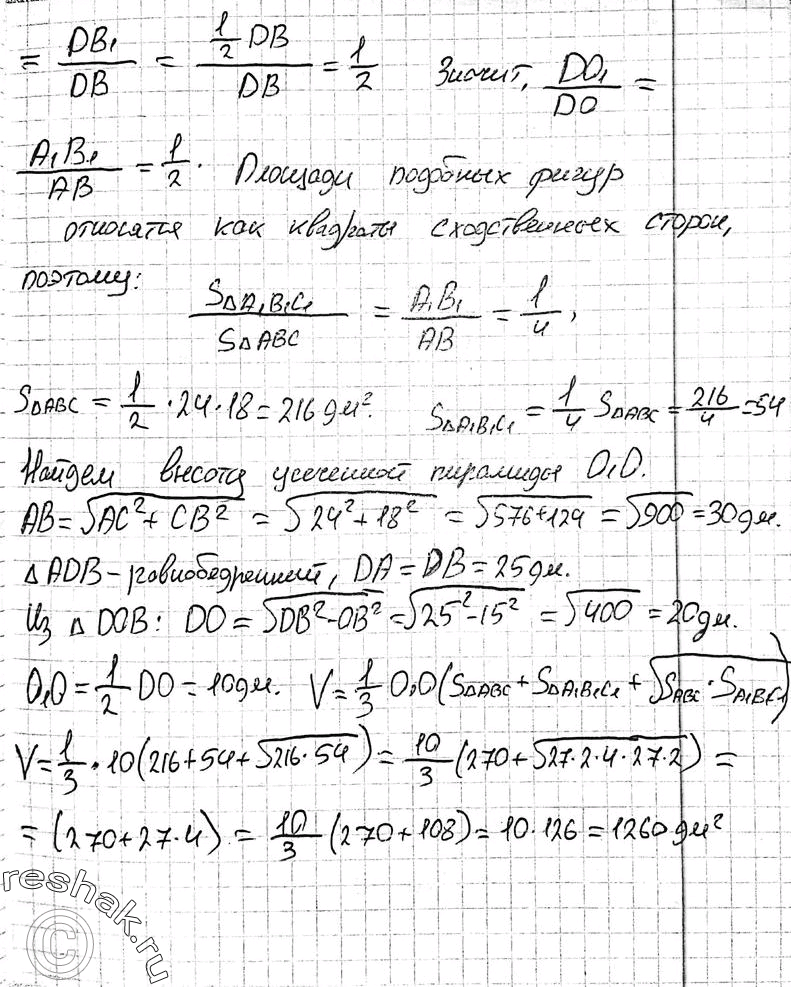 = DB₁/DB = (1/2 DB)/DB = 1/2 Значит, DO₁/DO =
A₁B₁/AB = 1/2. Площади подобных фигур
относятся как квадраты сходственных сторон,
поэтому:
S△A₁B₁C₁/S△ABC = A₁B₁/AB = 1/4,
S△ABC = 1/2 · 24 · 18 = 216 дм². S△A₁B₁C₁ = 1/4 S△ABC = 216/4 = 54
Найдем высоту усеченной пирамиды O₁O.
AB = √(AC² + CB²) = √(24² + 18²) = √(576 + 124) = √900 = 30 дм.
△ADB – равнобедренный, DA = DB = 25 дм.
Из △DOB: DO = √(DB² - OB²) = √(25² - 15²) = √400 = 20 дм.
O₁O = 1/2 DO = 10 дм. V = 1/3 O₁O (S△ABC + S△A₁B₁C₁ + √(SABC · SA₁B₁C₁))
V = 1/3 · 10 (216 + 54 + √(216 · 54)) = 10/3 (270 + √(27 · 2 · 4 · 27 · 2)) =
= (270 + 27 · 4) = 10/3 (270 + 108) = 10 · 126 = 1260 дм²
reshak.ru
©